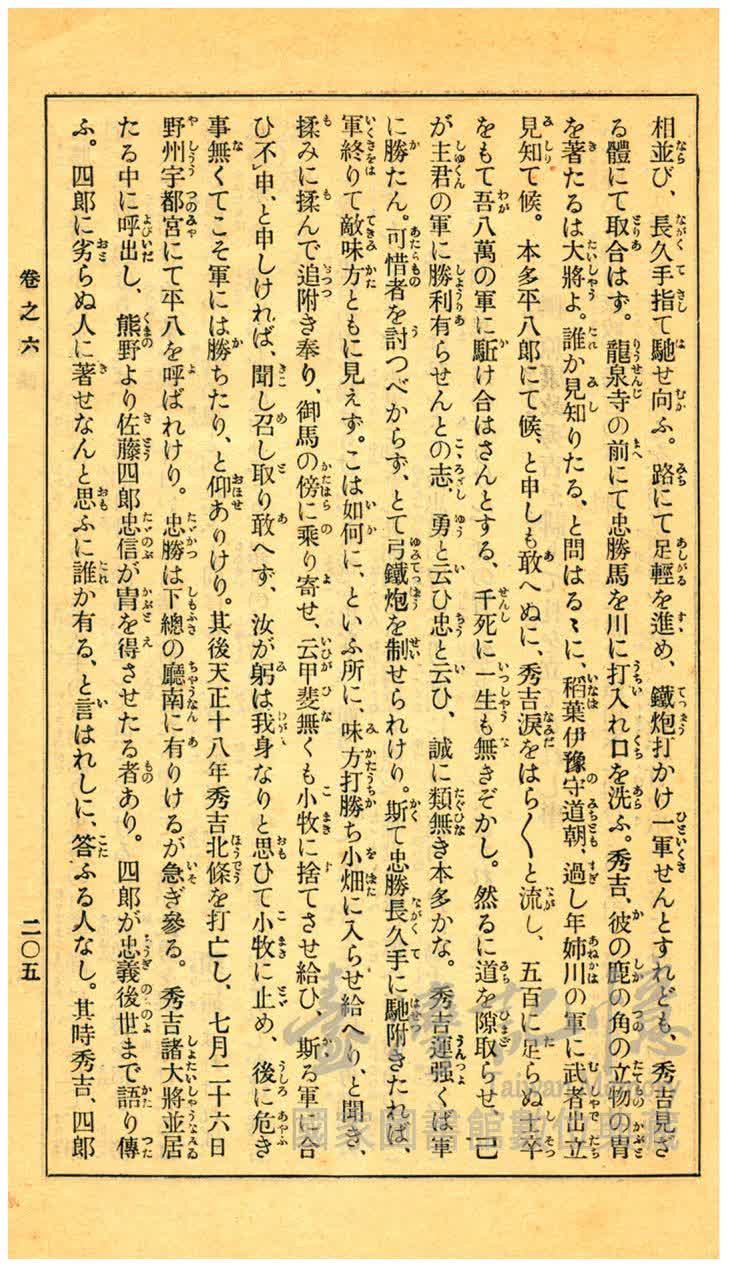 相並び、長久手指て馳せ向ふ。路にて足輕を進め、鐵炮打かけ一軍せんとすれども、秀吉見ざ
る體にて取合はず。龍泉寺の前にて忠勝馬を川に打入れ口を洗ふ。秀吉、彼の鹿の角の立物の冑
を著たるは大將よ。誰か見知りたる、と問はるゝに、稻葉伊豫守道朝、過し年姉川の軍に武者出立
見知て候。本多平八郎にて候、と申しも敢へぬに、秀吉淚をはら〱と流し、五百に足らぬ士卒
をもて吾八萬の軍に駈け合はさんとする、千死に一生も無きぞかし。然るに道を隙取らせ、己
が主君の軍に勝利有らせんとの志、勇と云ひ忠と云ひ、誠に類無き本多かな。秀吉運强くば軍
に勝たん。可惜者を討つべからず、とて弓鐵炮を制せられけり。斯て忠勝長久手に馳附きたれば、
軍終りて敵味方ともに見えず。こは如何に、といふ所に、味方打勝ち小畑に入らせ給へり、と聞き、
揉みに揉んで追附き奉り、御馬の傍に乘り寄せ、云甲斐無くも小牧に捨てさせ給ひ、斯る軍に合
ひ不㆑申、と申しければ、聞し召し取り敢へず、汝が躬は我身なりと思ひて小牧に止め、後に危き
事無くてこそ軍には勝ちたり、と仰ありけり。其後天正十八年秀吉北條を打亡し、七月二十六日
野州宇都宮にて平八を呼ばれけり。忠勝は下總の廳南に有りけるが急ぎ參る。秀吉諸大將並居
たる中に呼出し、熊野より佐藤四郎忠信が冑を得させたる者あり。四郎が忠義後世まで語り傳
ふ。四郎に劣らぬ人に著せなんと思ふに誰か有る、と言はれしに、答ふる人なし。其時秀吉、四郎
卷之六
二〇五
臺灣記憶
Taiwan Memory
國家圖書館數位典藏